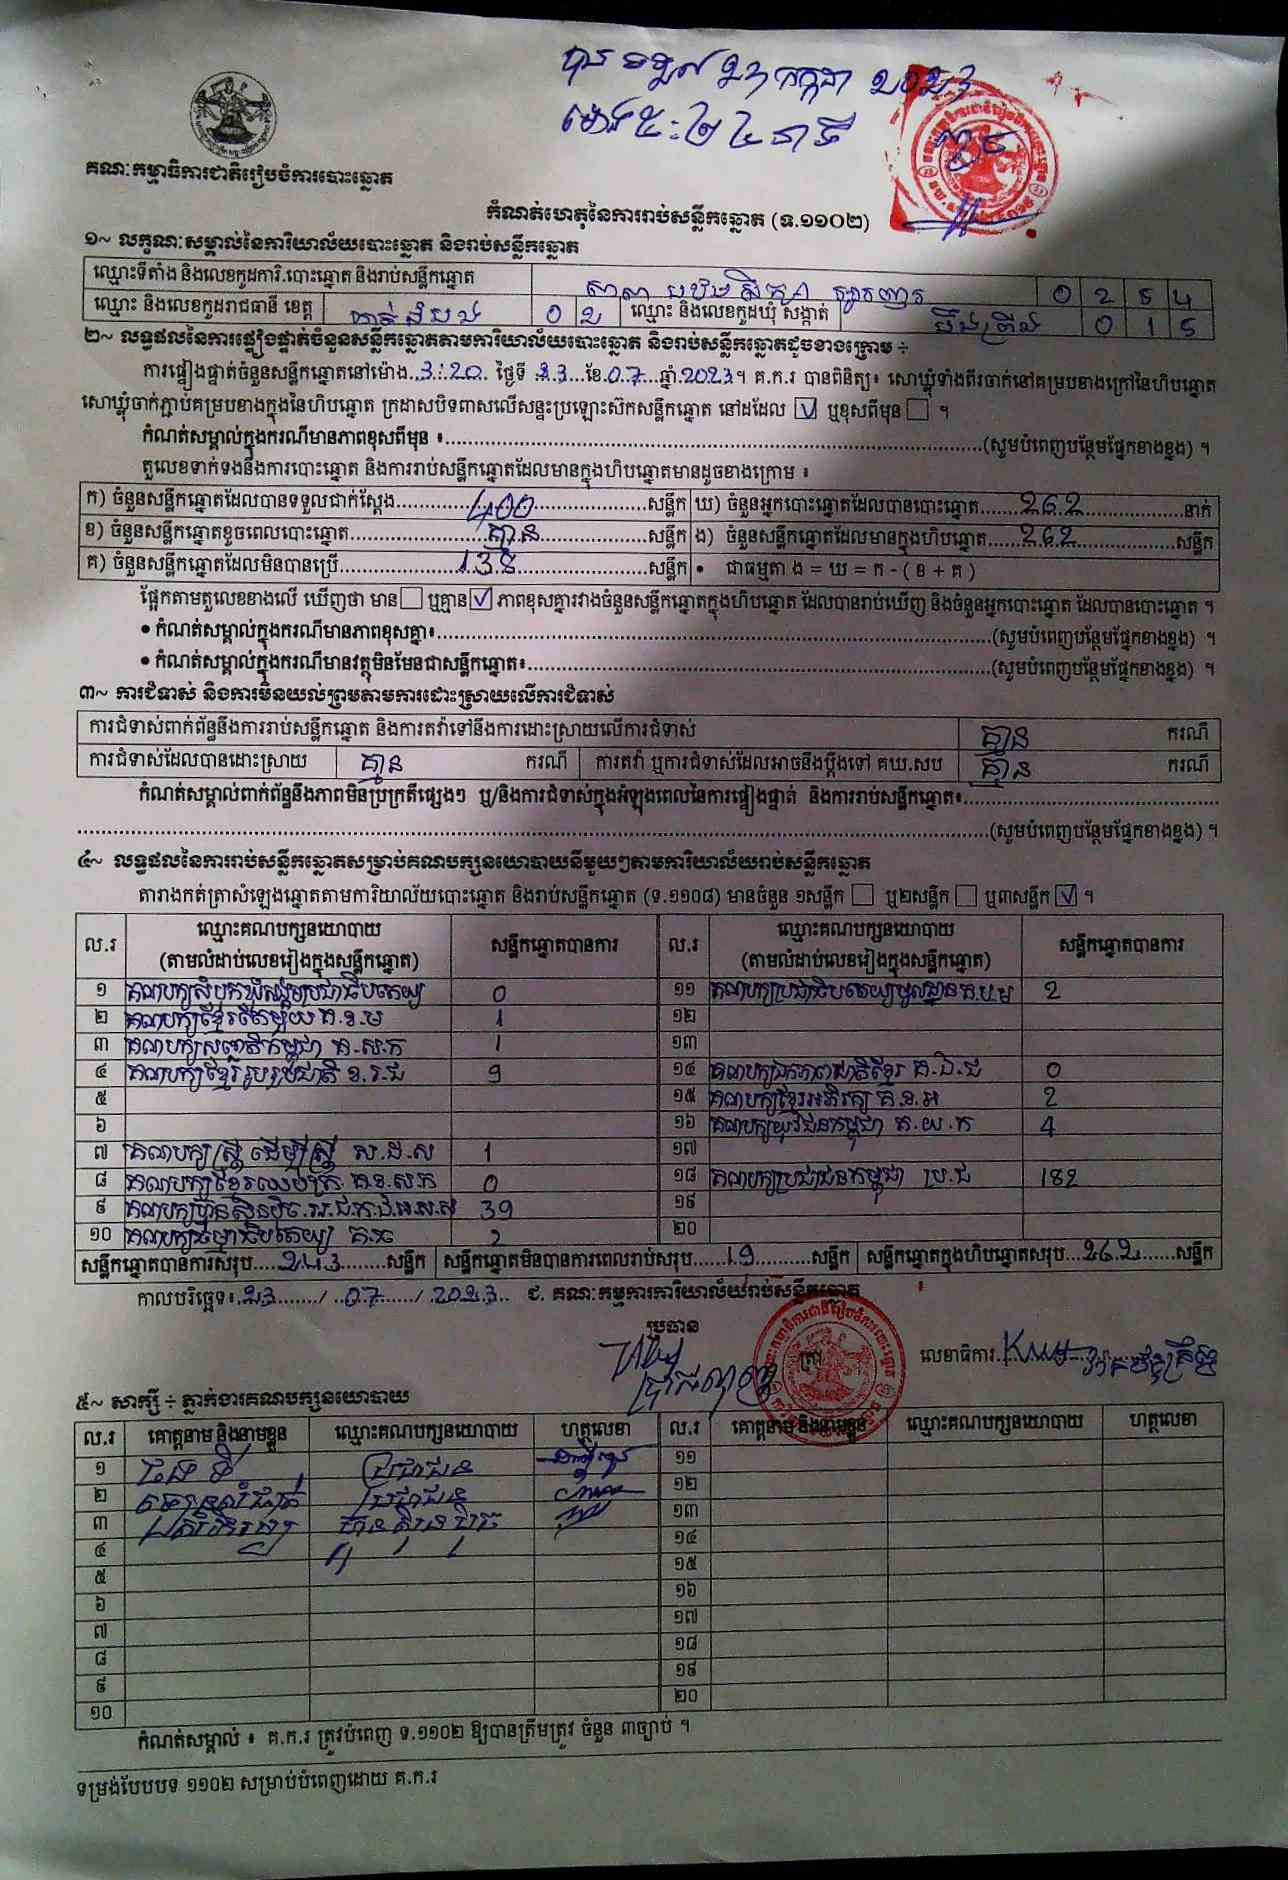 បានទទួល ២៣ កក្កដា ២០២៣
ម៉ោង ៥:២៤ នាទី
គណៈកម្មាធិការជាតិរៀបចំការបោះឆ្នោត
កំណត់ហេតុនៃការរាប់សន្លឹកឆ្នោត (ទ.១១០២)
១~ លក្ខណៈសម្គាល់នៃការិយាល័យបោះឆ្នោត និងរាប់សន្លឹកឆ្នោត
ឈ្មោះទីតាំង និងលេខកូដការិ.បោះឆ្នោត និងរាប់សន្លឹកឆ្នោត សាលា បឋមសិក្សា 0 2 5 4
ឈ្មោះ និងលេខកូដរាជធានី ខេត្ត បាត់ដំបង 0 2 ឈ្មោះ និងលេខកូដឃុំ សង្កាត់ 0 1 5
២~ លទ្ធផលនៃការផ្ទៀងផ្ទាត់ចំនួនសន្លឹកឆ្នោតតាមការិយាល័យបោះឆ្នោត និងរាប់សន្លឹកឆ្នោតដូចខាងក្រោម ÷
ការផ្ទៀងផ្ទាត់ចំនួនសន្លឹកឆ្នោតនៅម៉ោង 3:20 ថ្ងៃទី 23 ខែ 07 ឆ្នាំ 2023។ គ.ក.រ បានពិនិត្យ៖ សោឃ្លុំទាំងពីរចាក់នៅគម្របខាងក្រៅនៃហិបឆ្នោត
សោឃ្លុំចាក់ភ្ជាប់គម្របខាងក្នុងនៃហិបឆ្នោត ក្រដាសបិទពាសលើសន្ទះប្រឡោះស៊កសន្លឹកឆ្នោត នៅដដែល ☑ ឬខុសពីមុន ☐ ។
កំណត់សម្គាល់ក្នុងករណីមានភាពខុសពីមុន ៖........(សូមបំពេញបន្ថែមផ្នែកខាងខ្នង) ។
តួលេខទាក់ទងនឹងការបោះឆ្នោត និងការរាប់សន្លឹកឆ្នោតដែលមានក្នុងហិបឆ្នោតមានដូចខាងក្រោម ៖
ក) ចំនួនសន្លឹកឆ្នោតដែលបានទទួលជាក់ស្តែង 400 សន្លឹក ឃ) ចំនួនអ្នកបោះឆ្នោតដែលបានបោះឆ្នោត 262 នាក់
ខ) ចំនួនសន្លឹកឆ្នោតខូចពេលបោះឆ្នោត គ្មាន សន្លឹក ង) ចំនួនសន្លឹកឆ្នោតដែលមានក្នុងហិបឆ្នោត 262 សន្លឹក
គ) ចំនួនសន្លឹកឆ្នោតដែលមិនបានប្រើ 138 សន្លឹក • ជាធម្មតា ង = ឃ = ក - ( ខ + គ )
ផ្អែកតាមតួលេខខាងលើ ឃើញថា មាន ☐ ឬគ្មាន ☑ ភាពខុសគ្នារវាងចំនួនសន្លឹកឆ្នោតក្នុងហិបឆ្នោត ដែលបានរាប់ឃើញ និងចំនួនអ្នកបោះឆ្នោត ដែលបានបោះឆ្នោត ។
• កំណត់សម្គាល់ក្នុងករណីមានភាពខុសគ្នា៖........(សូមបំពេញបន្ថែមផ្នែកខាងខ្នង) ។
• កំណត់សម្គាល់ក្នុងករណីមានវត្ថុមិនមែនជាសន្លឹកឆ្នោត៖........(សូមបំពេញបន្ថែមផ្នែកខាងខ្នង) ។
៣~ ការជំទាស់ និងការមិនយល់ព្រមតាមការដោះស្រាយលើការជំទាស់
ការជំទាស់ពាក់ព័ន្ធនឹងការរាប់សន្លឹកឆ្នោត និងការតវ៉ាទៅនឹងការដោះស្រាយលើការជំទាស់ គ្មាន ករណី
ការជំទាស់ដែលបានដោះស្រាយ គ្មាន ករណី ការតវ៉ា ឬការជំទាស់ដែលអាចនឹងប្តឹងទៅ គឃ.សប គ្មាន ករណី
កំណត់សម្គាល់ពាក់ព័ន្ធនឹងភាពមិនប្រក្រតីផ្សេងៗ ឬ/និងការជំទាស់ក្នុងអំឡុងពេលនៃការផ្ទៀងផ្ទាត់ និងការរាប់សន្លឹកឆ្នោត៖........
........(សូមបំពេញបន្ថែមផ្នែកខាងខ្នង) ។
៤~ លទ្ធផលនៃការរាប់សន្លឹកឆ្នោតសម្រាប់គណបក្សនយោបាយនីមួយៗតាមការិយាល័យរាប់សន្លឹកឆ្នោត
តារាងកត់ត្រាសំឡេងឆ្នោតតាមការិយាល័យបោះឆ្នោត និងរាប់សន្លឹកឆ្នោត (ទ.១១០៨) មានចំនួន ១សន្លឹក ☐ ឬ២សន្លឹក ☐ ឬ៣សន្លឹក ☑ ។
ល.រ ឈ្មោះគណបក្សនយោបាយ សន្លឹកឆ្នោតបានការ ល.រ ឈ្មោះគណបក្សនយោបាយ សន្លឹកឆ្នោតបានការ
(តាមលំដាប់លេខរៀងក្នុងសន្លឹកឆ្នោត) (តាមលំដាប់លេខរៀងក្នុងសន្លឹកឆ្នោត)
១ គណបក្សសំបុកឃ្មុំសង្គមប្រជាធិបតេយ្យ 0 ១១ គណបក្សប្រជាធិបតេយ្យមូលដ្ឋាន គ.ប.ម 2
២ គណបក្សខ្មែរតែមួយ គ.ខ.ម 1 ១២
៣ គណបក្សសញ្ជាតិកម្ពុជា គ.ស.ក 1 ១៣
៤ គណបក្សខ្មែររួបរួមជាតិ ខ.រ.ជ 9 ១៤ គណបក្សឯកភាពជាតិខ្មែរ គ.ឯ.ជ 0
៥ ១៥ គណបក្សខ្មែរអភិរក្ស គ.ខ.អ 2
៦ ១៦ គណបក្សយុវជនកម្ពុជា គ.យ.ក 4
៧ គណបក្សស្ត្រីដើម្បីស្ត្រី ស.ដ.ស 1 ១៧
៨ គណបក្សខ្មែរឈប់ក្រ គ.ខ.ឈ.ក 0 ១៨ គណបក្សប្រជាជនកម្ពុជា ប្រ.ជ 182
៩ គណបក្សហ៊្វុនស៊ិនប៉ិច 39 ១៩
១០ គណបក្សធម្មាធិបតេយ្យ គ.ធ 2 ២០
សន្លឹកឆ្នោតបានការសរុប 243 សន្លឹក សន្លឹកឆ្នោតមិនបានការពេលរាប់សរុប 19 សន្លឹក សន្លឹកឆ្នោតក្នុងហិបឆ្នោតសរុប 262 សន្លឹក
កាលបរិច្ឆេទ៖ 23 / 07 / 2023 ជ. គណៈកម្មការការិយាល័យរាប់សន្លឹកឆ្នោត
ប្រធាន ត្រា លេខាធិការ
៥~ សាក្សី ÷ ភ្នាក់ងារគណបក្សនយោបាយ
ល.រ គោត្តនាម និងនាមខ្លួន ឈ្មោះគណបក្សនយោបាយ ហត្ថលេខា ល.រ គោត្តនាម និងនាមខ្លួន ឈ្មោះគណបក្សនយោបាយ ហត្ថលេខា
១ ប្រជាជន ១១
២ ប្រជាជន ១២
៣ ហ៊្វុនស៊ិនប៉ិច ១៣
៤ ១៤
៥ ១៥
៦ ១៦
៧ ១៧
៨ ១៨
៩ ១៩
១០ ២០
កំណត់សម្គាល់ ៖ គ.ក.រ ត្រូវបំពេញ ទ.១១០២ ឱ្យបានត្រឹមត្រូវ ចំនួន ៣ច្បាប់ ។
ទម្រង់បែបបទ ១១០២ សម្រាប់បំពេញដោយ គ.ក.រ